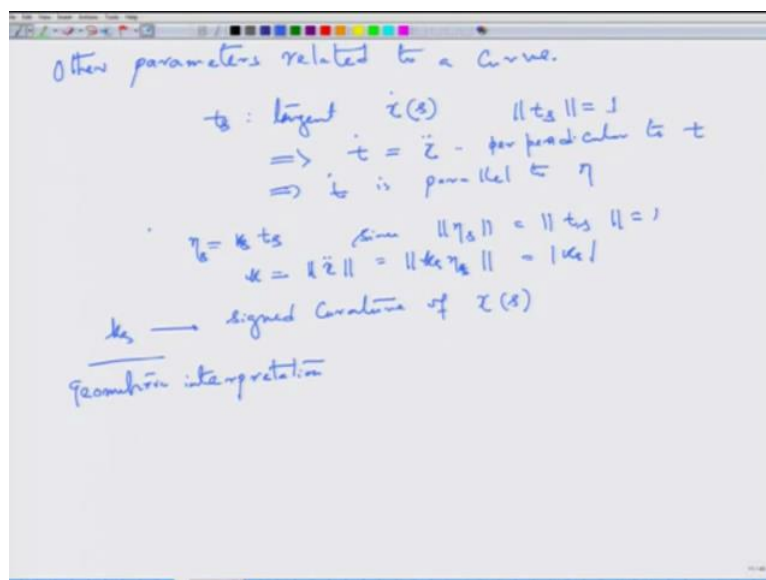 Other parameters related to a curve.
t_s : tangent ẋ(s) ||t_s|| = 1
=> ṫ = ẍ - perpendicular to t
=> ṫ is parallel to η
η_s = k_s t_s since ||η_s|| = ||t_s|| = 1
k = ||ẍ|| = ||k_s η_s|| = |k_s|
k_s → signed curvature of x(s)
Geometric interpretation